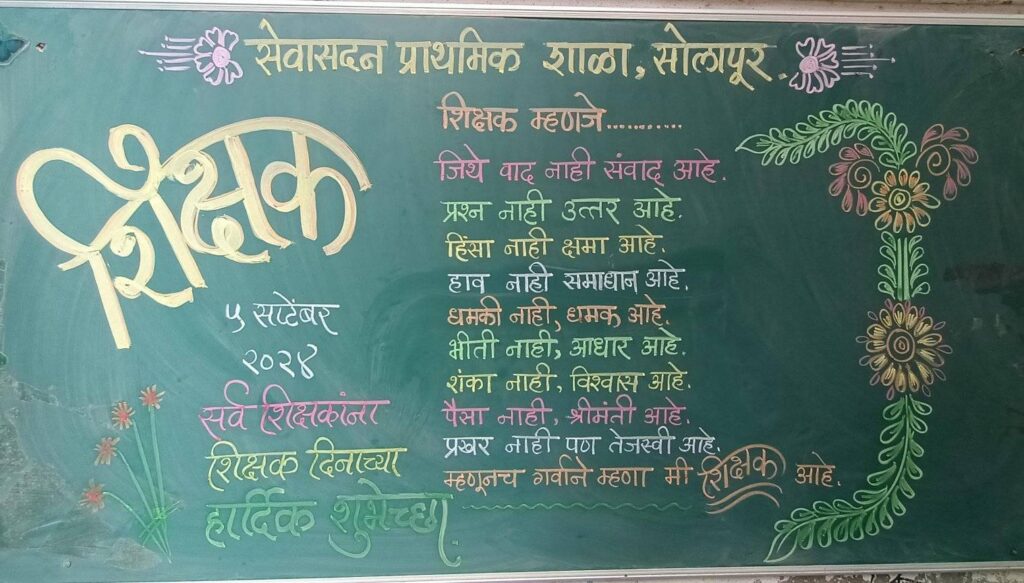 सेवासदन प्राथमिक शाळा, सोलापूर.
शिक्षक
५ सप्टेंबर
२०२४
सर्व शिक्षकांना
शिक्षक दिनाच्या
हार्दिक शुभेच्छा.
शिक्षक म्हणजे............
जिथे वाद नाही संवाद आहे.
प्रश्न नाही उत्तर आहे.
हिंसा नाही क्षमा आहे.
हाव नाही समाधान आहे.
धमकी नाही, धमक आहे.
भीती नाही, आधार आहे.
शंका नाही, विश्वास आहे.
पैसा नाही, श्रीमंती आहे.
प्रखर नाही पण तेजस्वी आहे.
म्हणूनच गर्वाने म्हणा मी शिक्षक आहे.